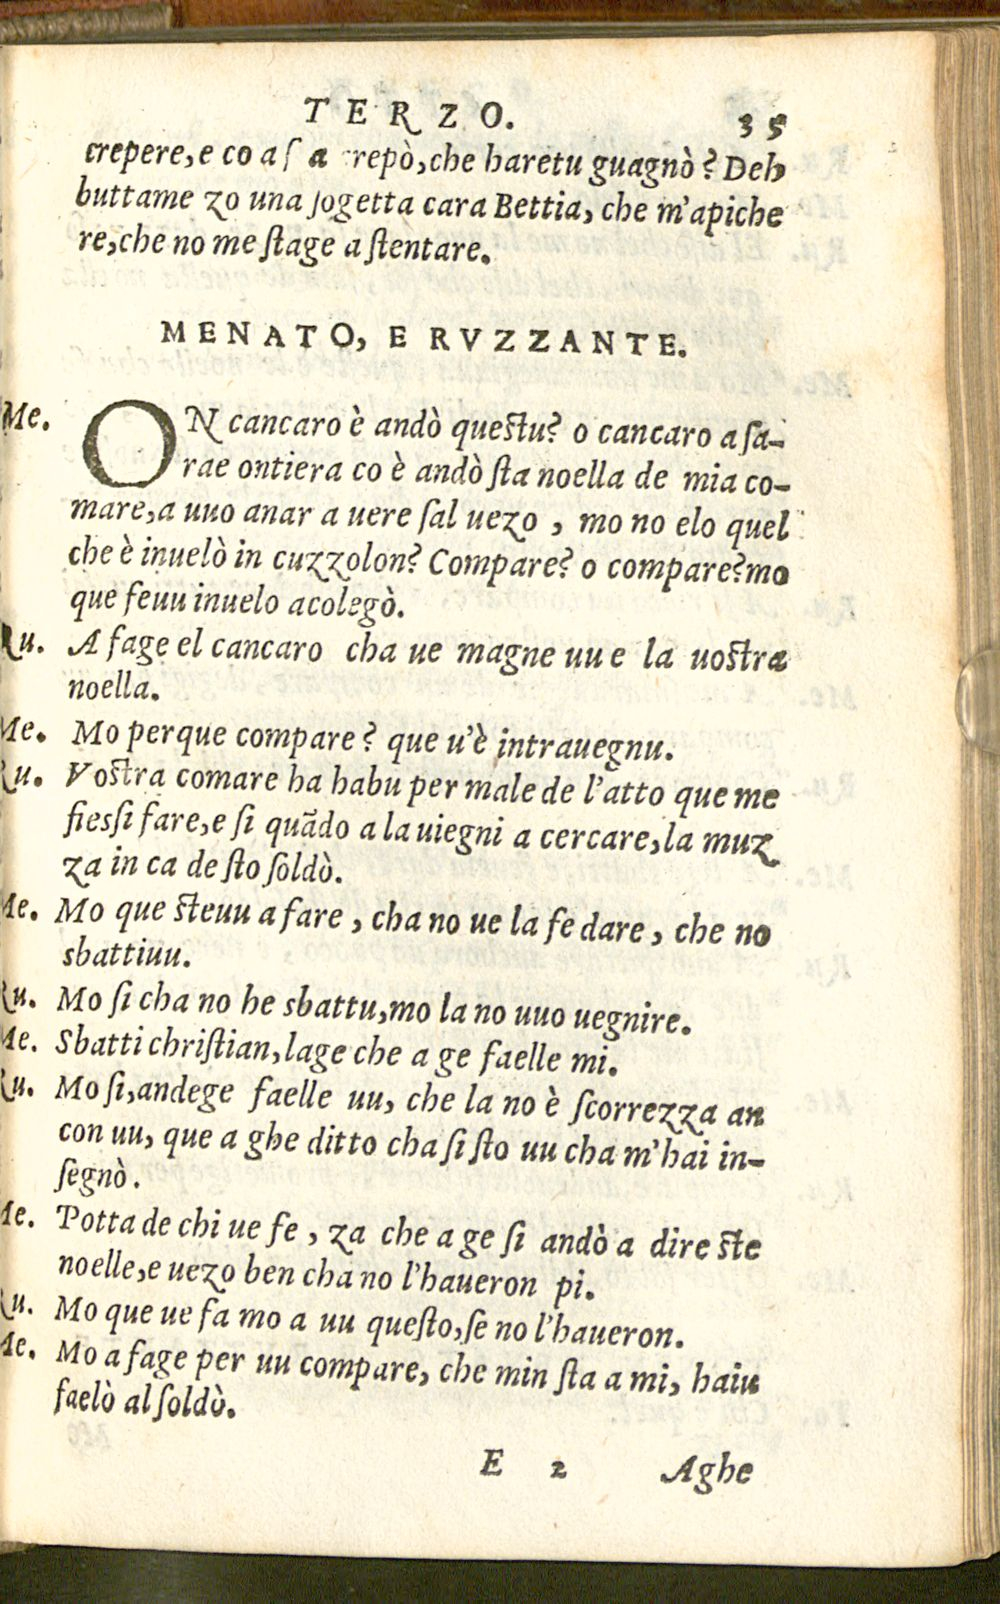 TERZO. 35
crepere, e co a s a repò, che haretu guagnò? Deh
buttame zo una sogetta cara Bettia, che m'apiche
re, che no me stage a stentare.
MENATO, E RVZZANTE.
Me. ON cancaro è andò questu? o cancaro a sa-
rae ontiera co è andò sta noella de mia co-
mare, a vuo anar a uere sal uezo, mo no elo quel
che è inuelò in cuzzolon? Compare? o compare? mo
que feuu inuelo acolegò.
Ru. A fage el cancaro cha ue magne uu e la uostra
noella.
Me. Mo perque compare? que u'è intrauegnu.
Ru. Vostra comare ha habu per male de l'atto que me
fiessi fare, e si quãdo a la uiegni a cercare, la muz
za in ca de sto soldò.
Me. Mo que steuu a fare, cha no ue la fe dare, che no
sbattiuu.
Ru. Mo si cha no he sbattu, mo la no uuo uegnire.
Me. Sbatti christian, lage che a ge faelle mi.
Ru. Mo si, andege faelle uu, che la no è scorrezza an
con uu, que a ghe ditto cha si sto uu cha m'hai in-
segnò.
Me. Potta de chi ue fe, za che a ge si andò a dire ste
noelle, e uezo ben cha no l'haueron pi.
Ru. Mo que ue fa mo a uu questo, se no l'haueron.
Me. Mo a fage per uu compare, che min sta a mi, haiu
faelò al soldò.
E 2 Aghe